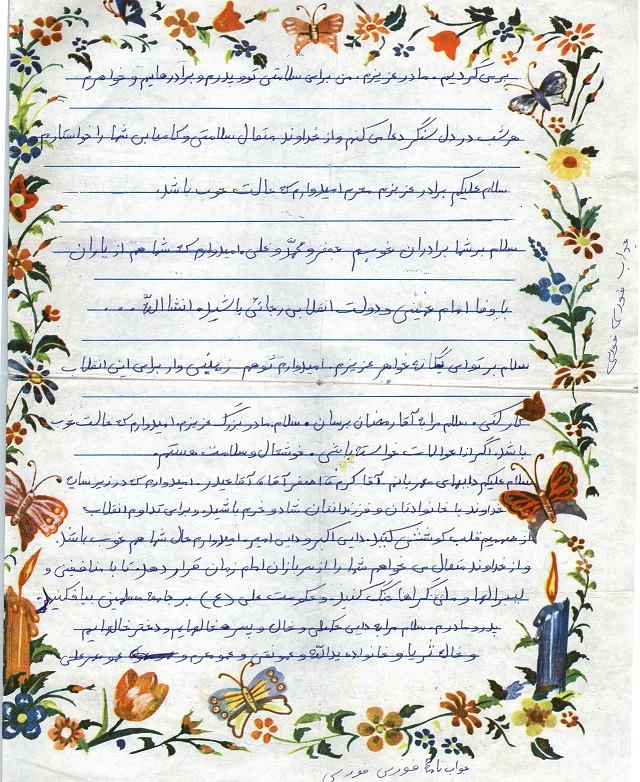 برمی گردیم. مادر عزیزم. من برای سلامتی تو و پدرم و برادرهایم و خواهرم
هر شب در دل سنگر دعا می کنم و از خداوند متعال سلامتی و کامیابی شما را خواستارم
سلام علیکم برادر عزیزم محرم امیدوارم که حالت خوب باشد.
سلام بر شما برادران خوبم جعفر و محمد و علی. امیدوارم که شما هم از یاران
با وفا امام خمینی و دولت انقلابی رجائی باشید. انشا الله ....
سلام بر تو ای یگانه خواهر عزیزم. امیدوارم تو هم زینب وار برای این انقلاب
کار کنی. سلام مرا به آقا رمضان برسان. سلام مادر بزرگ عزیزم. امیدوارم که حالت خوب
باشد. اگر از احوالات خواسته باشی، خوشحال و سلامت هستم.
سلام علیکم دایهای مهربانم آقا کرم، آقا صفر آقا، آقا حیدر. امیدوارم که در زیر سایه
خداوند با خانوادتان و فرزندانتان شاد و خرم باشید. و برای تداوم انقلاب
از صمیم قلب کوشش کنید. دایی اکبر و دایی امیر. امیدوارم حال شما هم خوب باشد.
و از خداوند متعال می خواهم شما را از سربازان امام زمان قرار دهد. تا با منافقین و
لیبرالها و ملی گراها جنگ کنید. و حکومت علی (ع) بر جامعه مسلمین بیافکنید.
پدر و مادرم. سلام مرا به دایی و خاله و پسر خالهایم و دختر خالهایم
و خاله ثریا و خانواده یدالله و عمو تقی و عمو محرم و عمو صفرعلی
جواب نامه فوری فوری
جواب فوری فوری